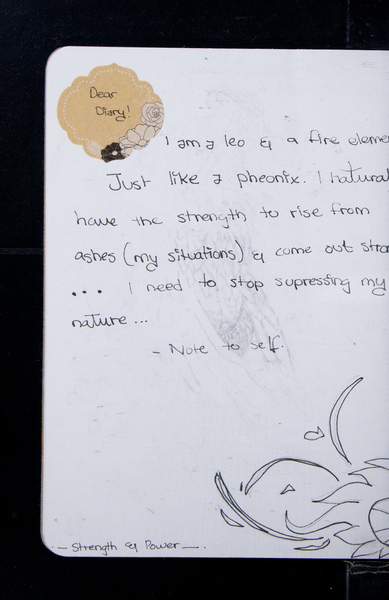 Dear
Diary!
I am a leo & a fire eleme
Just like a pheonix. I natural
have the strength to rise from
ashes (my situations) & come out stro
... I need to stop supressing my
nature...
- Note to self.
- Strength & Power -.